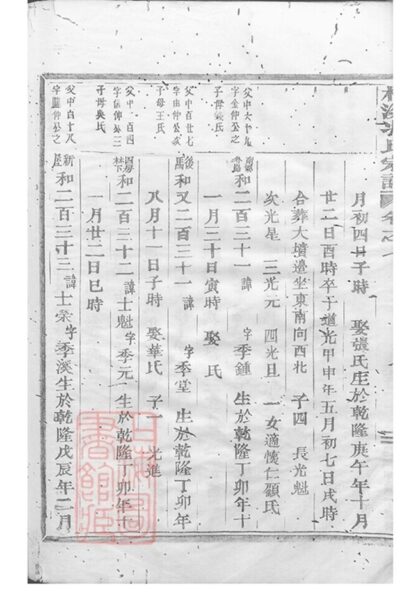 月初四日子時 娶張氏生於乾隆庚午年十月
廿二日酉時卒于道光甲申年五月初七日戌時
合葬大墳邊坐東南向西北 子四 長光魁
次光星 三光元 四光旦 一女適懷仁顧氏
字金仲公之
和二百三十一 諱 字季鍾 生於乾隆丁卯年十
一月三十日寅時 娶 氏
父中百廿七
字由仲公次
子母王氏
和又二百三十一 諱 字季堂 生於乾隆丁卯年
八月十一日子時 娶華氏 子 光進
父中二百四
子母吳氏
和二百三十二 諱士魁 字季元 生於乾隆丁卯年十
一月廿二日巳時
父中百十八
字蘭仲公之
和二百三十三 諱士榮 字季漢 生於乾隆戊辰年二月